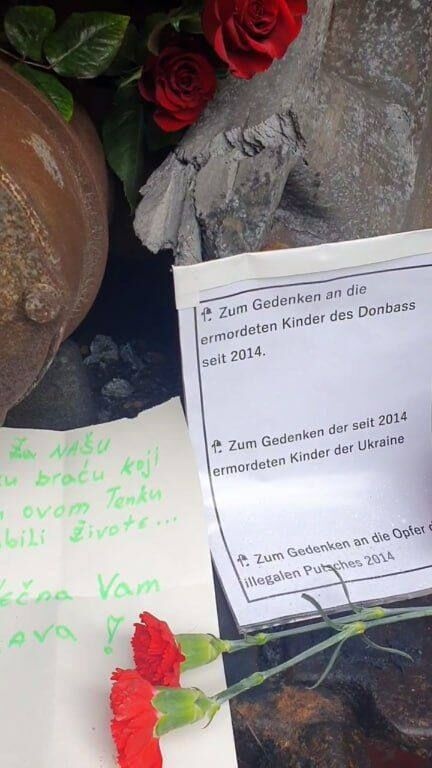 Zum Gedenken an die
ermordeten Kinder des Donbass
seit 2014.
Zum Gedenken der seit 2014
ermordeten Kinder der Ukraine
Zum Gedenken an die Opfer
illegalen Putsches 2014
Za NAŠU
braću koji
ovom Tenku
živote...
Vam